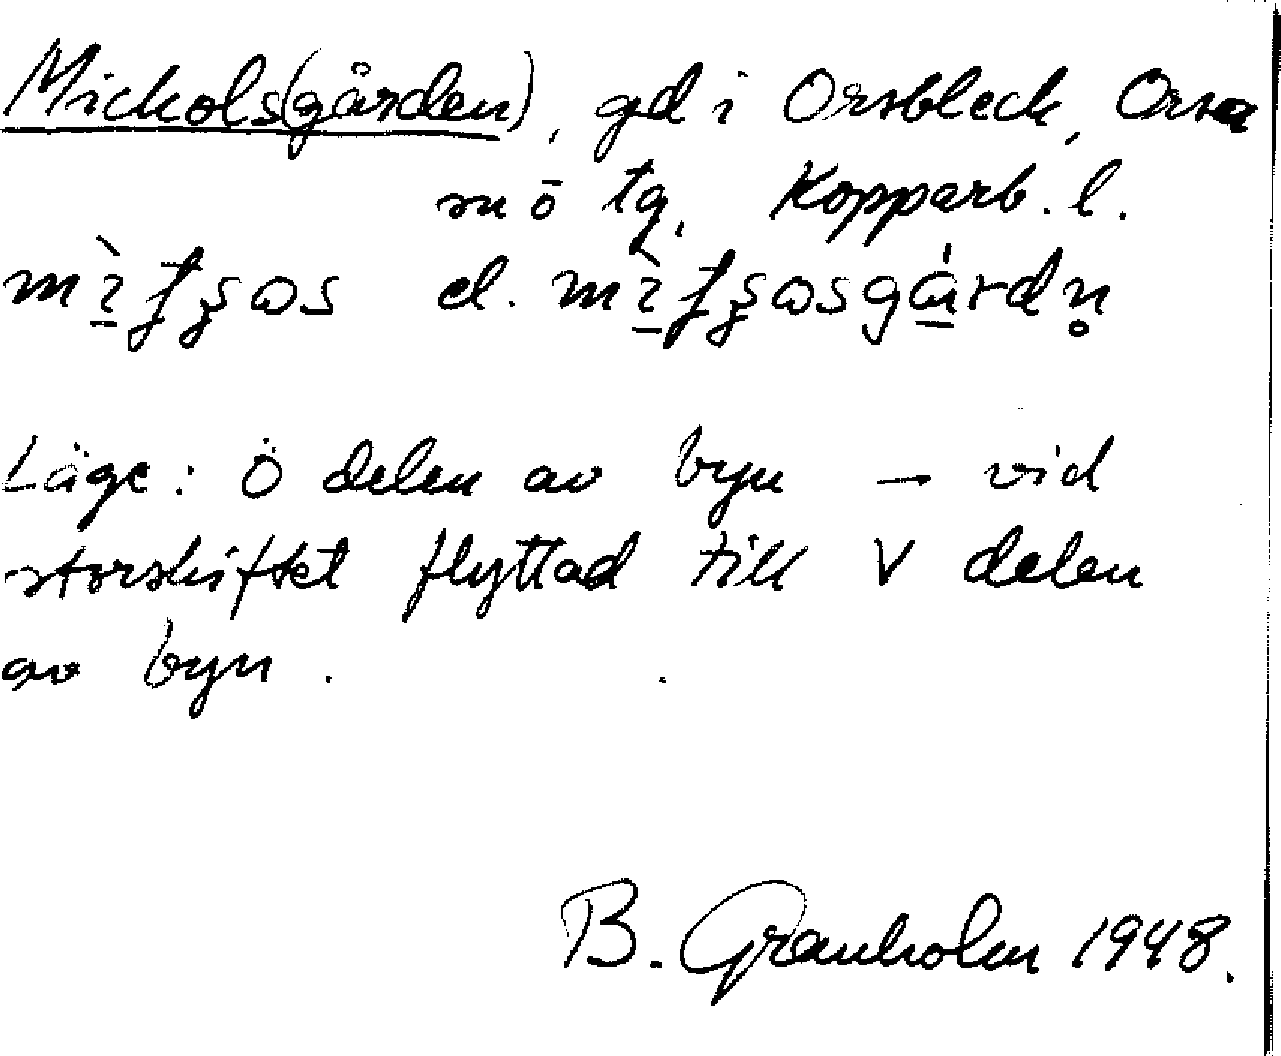 Mickols(gården), gd i Orsbleck, Orsa
sn o tg, Kopparb. l.
el.
Läge: Ö delen av byn – vid
storskiftet flyttad till V delen
av byn.
B. Granholm 1948.